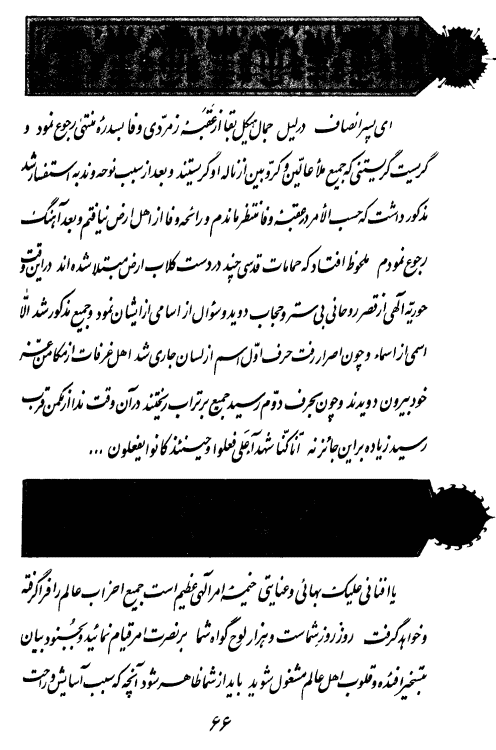 ای پسر انصاف در لیل جمال هیکل بقا از عقبهٔ زمرّدی وفا بسدرهٔ منتهی رجوع نمود و
گریست گریستنی که جمیع ملأ عالین و کرّوبین از ناله او گریستند و بعد از سبب نوحه و ندبه استفسار شد
مذکور داشت که حسب الأمر در عقبهٔ وفا منتظر ماندم و رائحه وفا از اهل ارض نیافتم و بعد آهنگ
رجوع نمودم ملحوظ افتاد که حمامات قدسی چند در دست کلاب ارض مبتلا شده اند در این وقت
حوریّه الهی از قصر روحانی بی ستر و حجاب دوید و سؤال از اسامی ایشان نمود و جمیع مذکور شد الّا
اسمی از اسماء و چون اصرار رفت حرف اوّل اسم از لسان جاری شد اهل غرفات از مکامن عزّ
خود بیرون دویدند و چون بحرف دوّم رسید جمیع بر تراب ریختند در آن وقت ندا از مکمن قرب
رسید زیاده بر این جائز نه انّا کنّا شهداء علی فعلوا و حینئذ کانوا یفعلون ...
یا افنانی علیک بهائی و عنایتی خیمهٔ امر الهی عظیم است جمیع احزاب عالم را فرا گرفته
و خواهد گرفت روز روز شماست و هزار لوح گواه شما بر نصرت امر قیام نمائید و بجنود بیان
بتسخیر افئده و قلوب اهل عالم مشغول شوید باید از شما ظاهر شود آنچه که سبب آسایش و راحت
۶۶